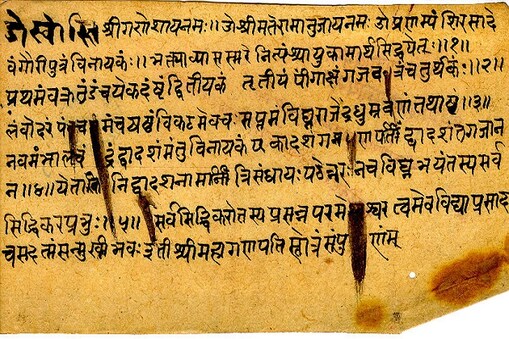 ॐ स्वस्ति श्रीगणेशायनमः॥ ॐ श्रीमतेरामानुजायनमः ॐ प्रणम्यं शिरसादे
वंगौरीपुत्रंविनायकं॥ भक्तयाव्यासस्मरेनित्यंआयुकामार्थसिद्धयेत्ः॥१॥
प्रथमंवक्रतुंडंचयेकदंष्ट्रंद्वितीयकं तृतीयं पींगाक्षंगजव त्रंचतुर्थकं॥२॥
लंवोदरं पंच मंचयष्ठंविकटमेवचः सप्तमंविघ्नराजेंद्रंधुम्रवर्णंतथाष्टं॥३॥
नवमंभालचं द्रंदशमंतुविनायकं एकादशंगण पतिं द्वादशंतगजान
न॥४॥येतानि द्वादशनामानि त्रिसंधायःपठेन्नरःनचविघ्नभयंतस्यसर्व
सिद्धिकरप्रभुः॥५॥सर्वसिद्धि तस्य प्रसन्न परमे श्वर त्वमेवविद्या
भवःइतीश्रीमहागणपतिस्तोत्रंसंपु र्णम्